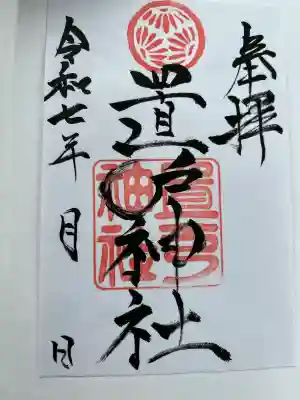 奉拝
置戸神社
置戸
神社
令和七年 月 日